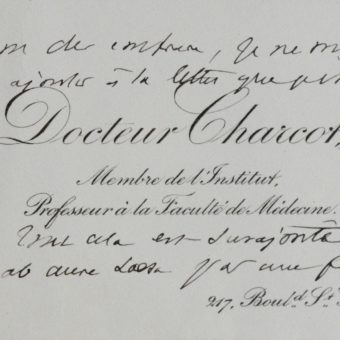 de confrère, je ne
ajouter à la lettre que
Docteur Charcot,
Membre de l'Institut,
Professeur à la Faculté de Médecine.
Tout cela est surajouté
par une
217, Boul.d St.